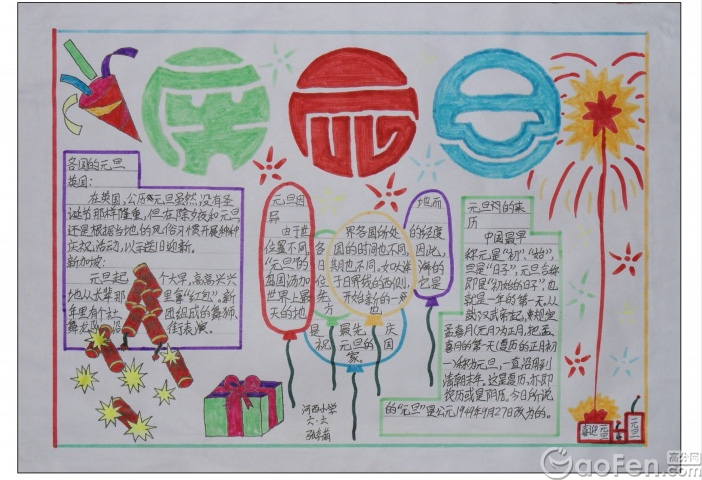 庆元旦
各国的元旦
英国:
在英国,公历元旦虽然没有圣
诞节那样隆重,但在除夕夜和元旦,
还是根据当地的风俗习惯开展种种
庆祝活动,以示送旧迎新。
新加坡:
元旦起个大早,高高兴兴
地从长辈那里拿“红包”。新
年里有个社团组成的舞狮、
舞龙队沿街表演。
元旦因地而
异
由于世界各国所处的经度
位置不同,各国的时间也不同,因此,
“元旦”的日期也不同。如大洋洲的
岛国汤加位于日界线的西侧,它是
世界上最先开始新的一
天的地方,也
是最先庆
祝元旦的国
家。
元旦的来
历
中国最早
称元是“初”、“始”,
旦是“日子”,元旦合称
即是“初始的日子”,也
就是一年的第一天。从
汉武帝起,规定
孟喜月(元月)为正月,把孟
喜月的第一天(夏历的正月初
一)称为元旦,一直沿用到
清朝末年。这是夏历,亦即
农历或是阴历。今日所说
的“元旦”是公元1949年9月27日改为的。
河西小学
六·六
喜迎
元旦
元旦
高分网
GaoFen.com